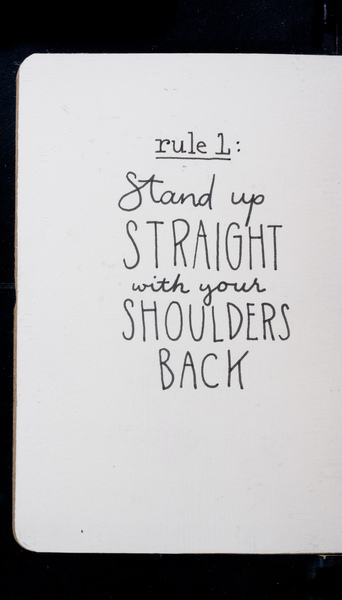 rule 1:
Stand up
STRAIGHT
with your
SHOULDERS
BACK